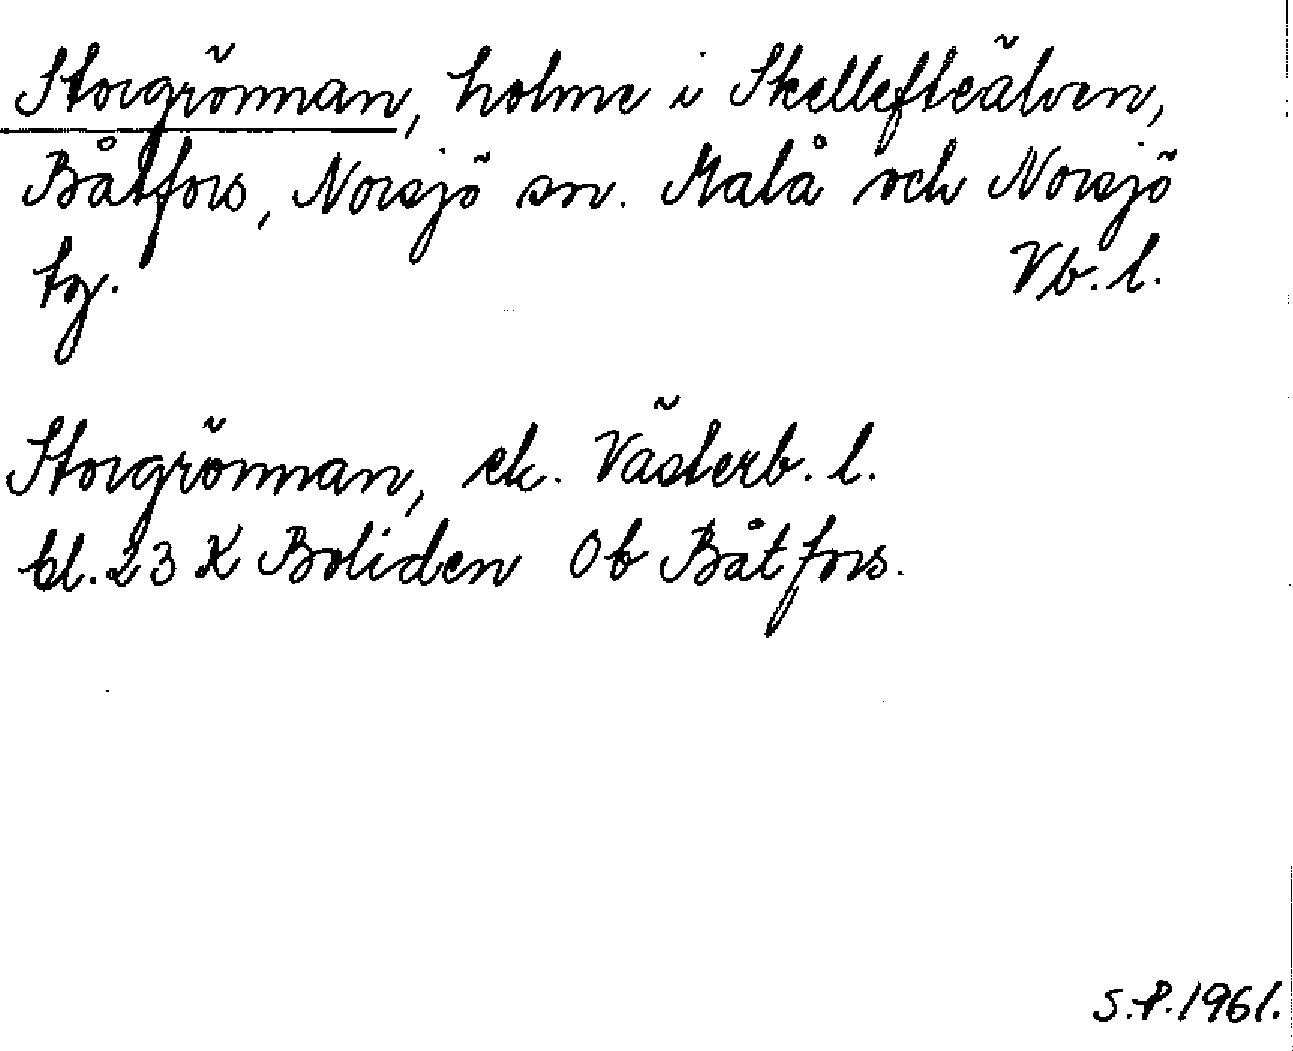 Storgrönnan, holme i Skellefteälven,
Båtfors, Norsjö sn. Malå och Norsjö
tg. Vb. l.
Storgrönnan, ek. Västerb. l.
bl. 23 K Boliden Ob Båtfors.
S.P. 1961.